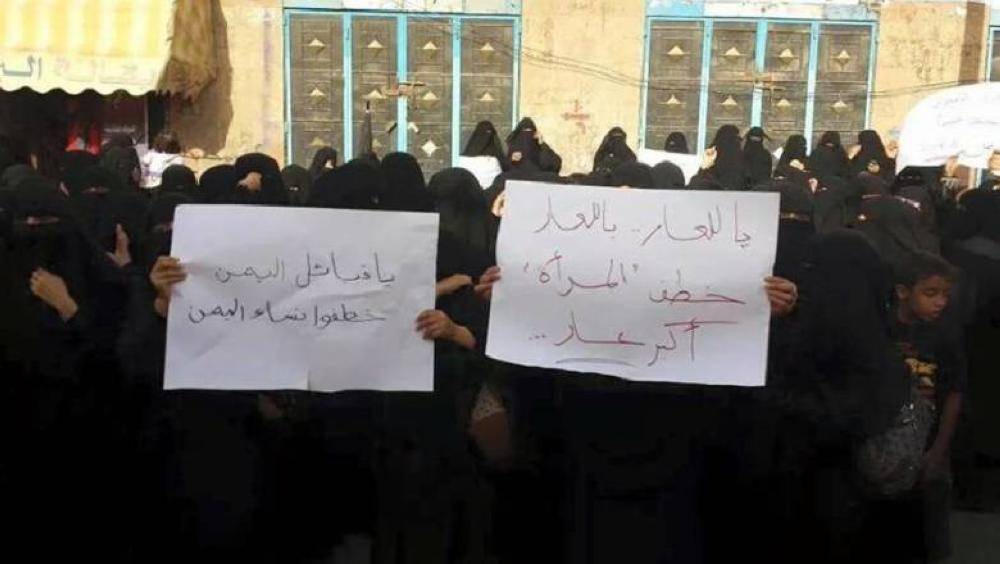 يا للعار.. يا للعار
خطف "المرأة"
أكبر عار...
يا قبائل اليمن
خطفوا نساء اليمن